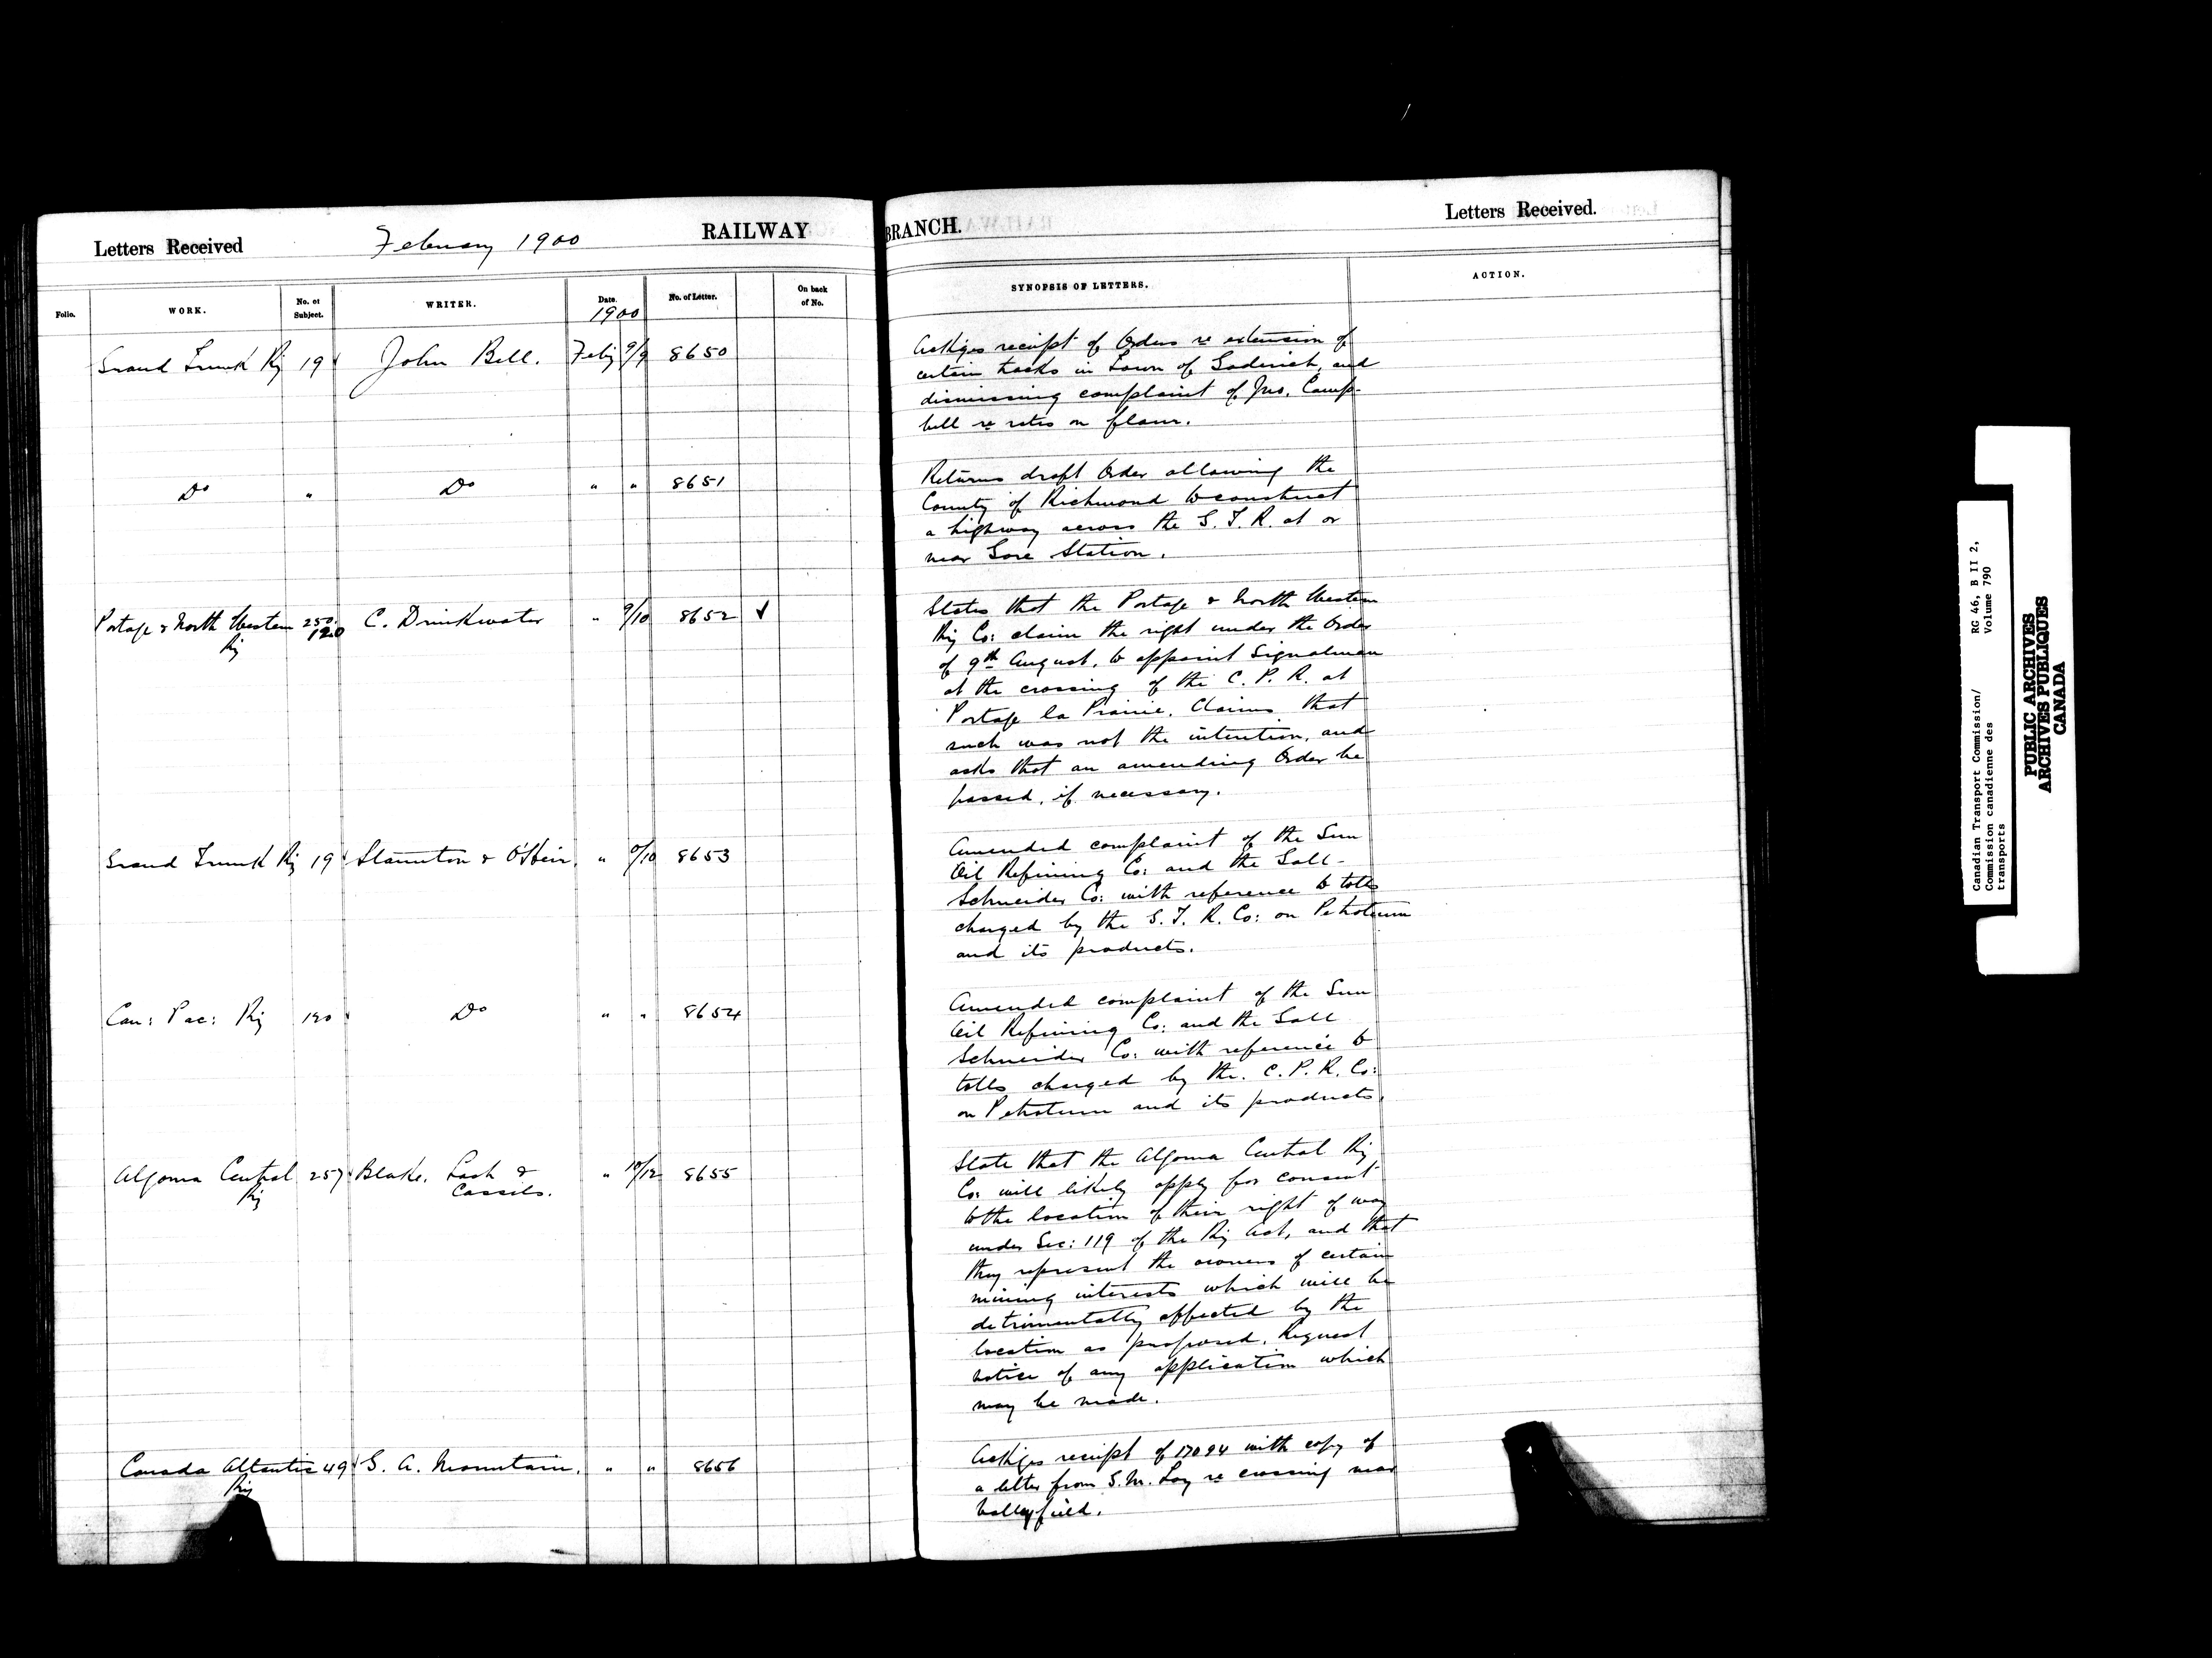 Letters Received February 1900 RAILWAY BRANCH. Letters Received.
Folio. WORK. No. of Subject. WRITER. Date. 1900 No. of Letter. On back of No. SYNOPSIS OF LETTERS. ACTION.
Grand Trunk Ry 19 John Bell. Feby 9/9 8650
Ackges receipt of Orders re extension of
certain tracks in Town of Goderich, and
dismissing complaint of Jno. Camp-
bell re rates on flour.
Do " Do " " 8651
Returns draft Order allowing the
County of Richmond to construct
a highway across the G. T. R. at or
near Gore Station.
Portage & North Western 250. C. Drinkwater " 9/10 8652 ✓
Ry 120
States that the Portage & North Western
Ry Co: claim the right under the Order
of 9th August, to appoint Signalman
at the crossing of the C. P. R. at
Portage la Prairie. Claims that
such was not the intention, and
asks that an amending Order be
passed, if necessary.
Grand Trunk Ry 19 Staunton & O'Heir. " /10 8653
Amended complaint of the Sun
Oil Refining Co: and the Gall-
Schneider Co: with reference to tolls
charged by the G. T. R. Co: on Petroleum
and its products.
Can: Pac: Ry 120 Do " " 8654
Amended complaint of the Sun
Oil Refining Co: and the Gall
Schneider Co: with reference to
tolls charged by the. C. P. R. Co:
on Petroleum and its products.
Algoma Central 257 Blake, Lash & " 10/12 8655
Ry Cassels.
State that the Algoma Central Ry
Co: will likely apply for consent
to the location of their right of way
under Sec: 119 of the Ry Act, and that
they represent the owners of certain
mining interests which will be
detrimentally affected by the
location as proposed. Request
notice of any application which
may be made.
Canada Atlantic 49 G. A. Mountain. " " 8656
Ry
Ackges receipt of 17094 with copy of
a letter from S. M. Loy re crossing near
Valleyfield.
Canadian Transport Commission/ RG 46, B II 2,
Commission canadienne des Volume 790
transports
PUBLIC ARCHIVES
ARCHIVES PUBLIQUES
CANADA